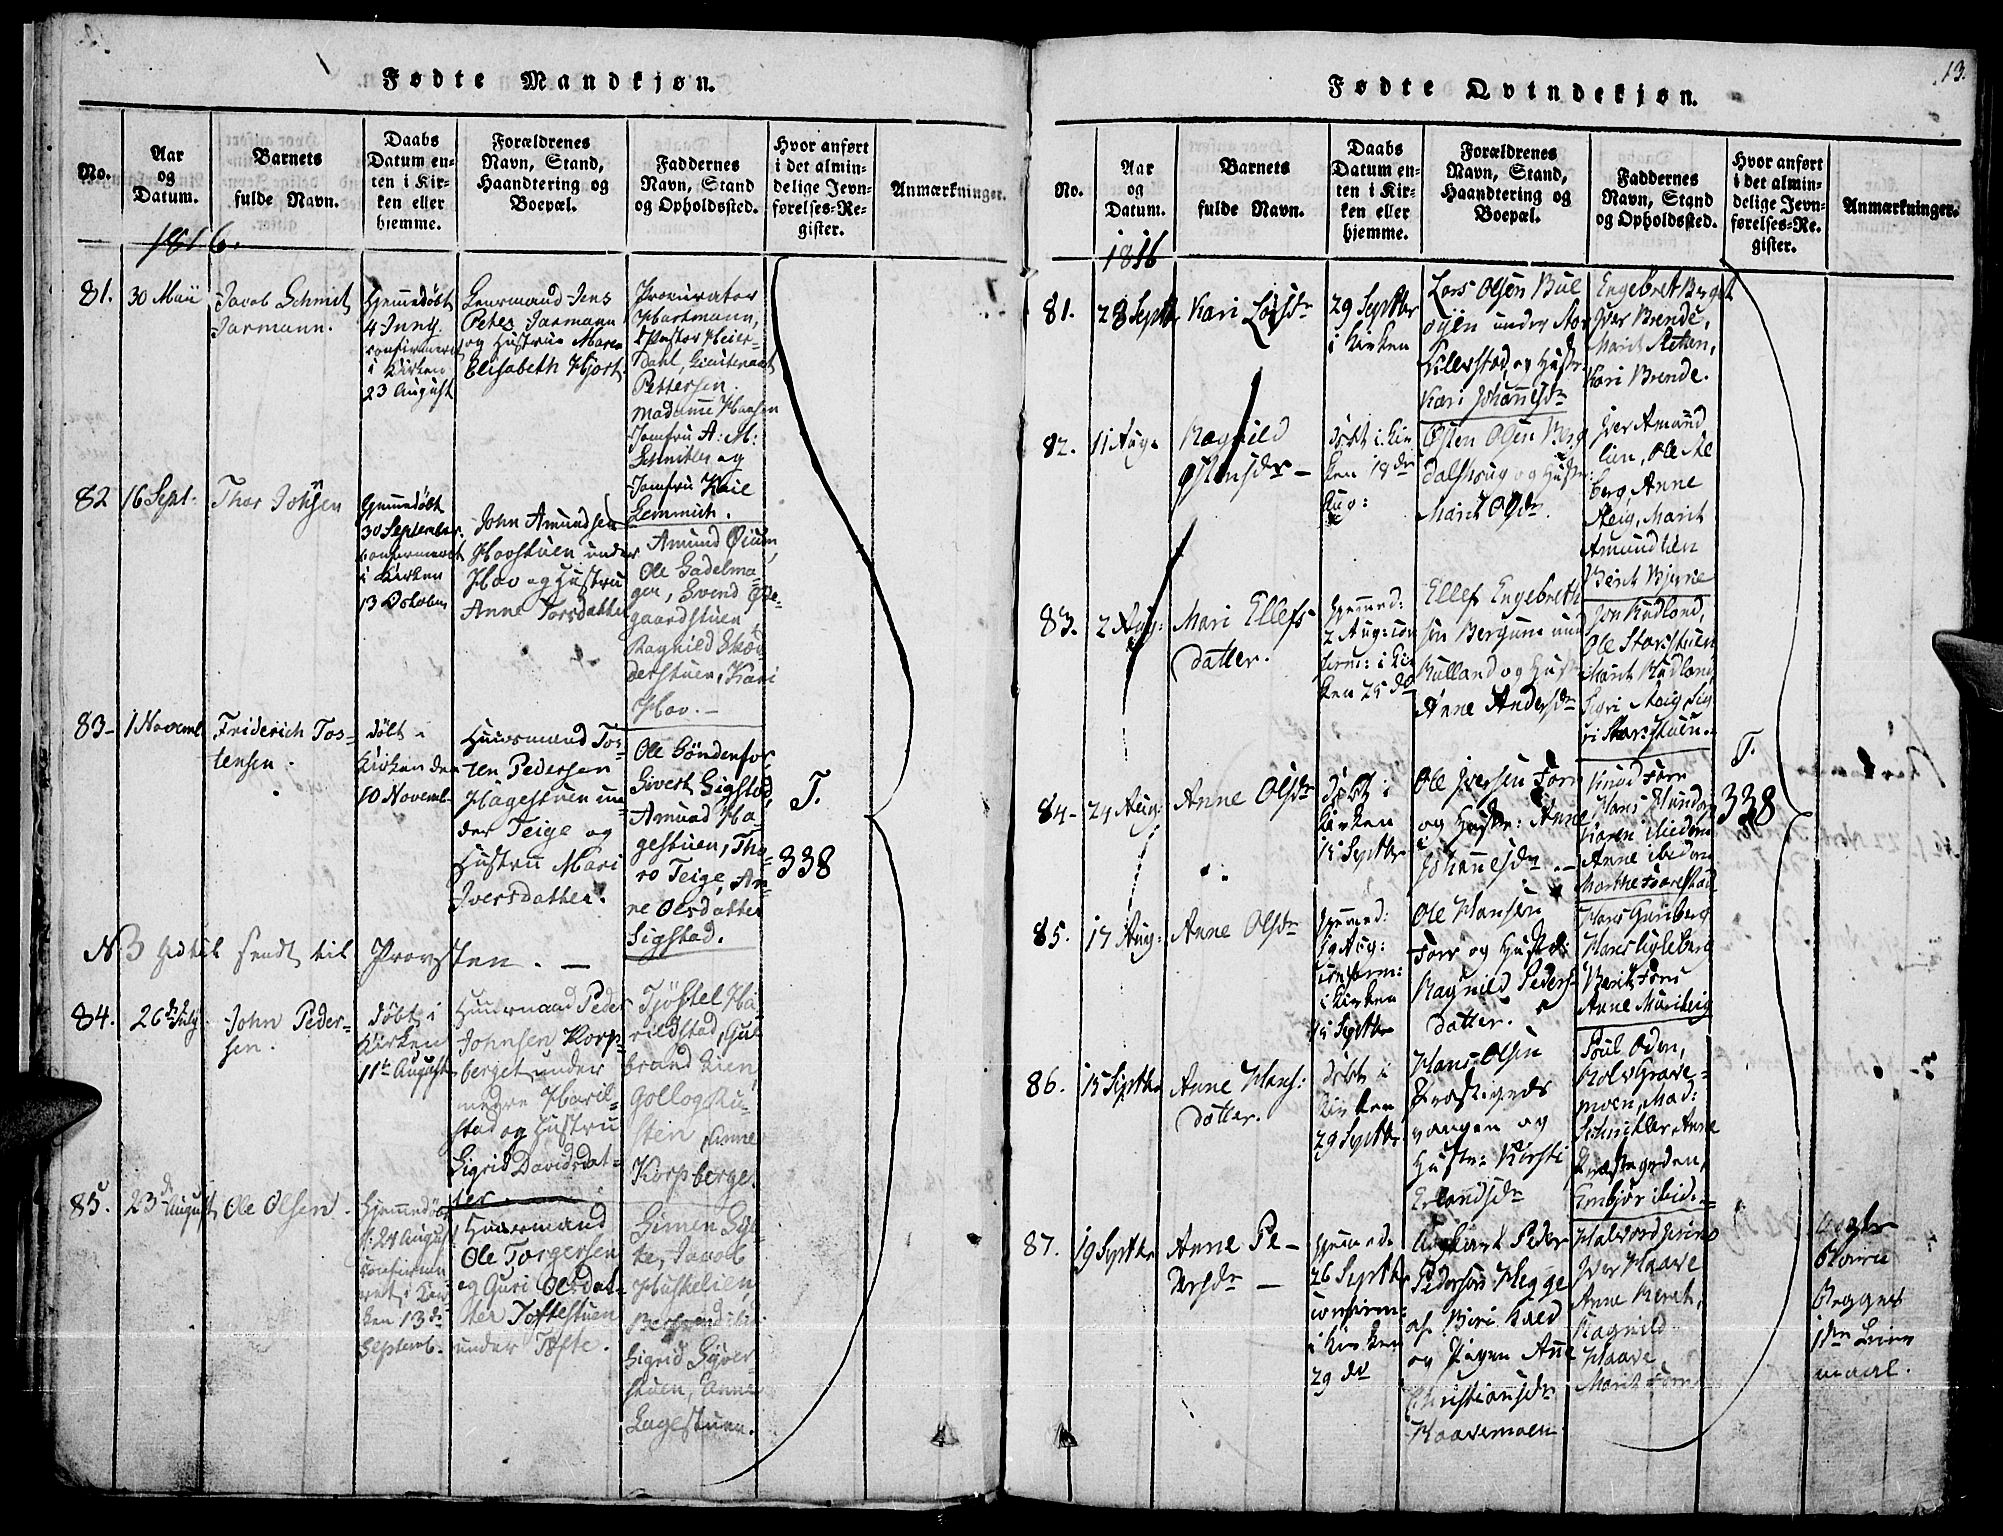 Fødte Mandkjøn.
No.
Aar
og
Datum.
Barnets
fulde Navn.
Daabs
Datum en-
ten i Kir-
ken eller
hjemme.
Forældrenes
Navn, Stand,
Haandtering og
Boepæl.
Faddernes
Navn, Stand
og Opholdssted.
Hvor anført
i det almin-
delige Jevn-
førelses-Re-
gister.
Anmærkninger.
1816.
81.
30 Maii
Jacob Schmidt
Jarmann.
Hjemmedøbt
4 Juny.
confirmeret
i Kirken
23 August
Lensmand Jens
Peter Jarmann
og Hustrue Maren
Elisabeth Hjort.
Procurator
Hartmann,
Pastor Heier-
Dahl, Lieutenant
Pettersen.
Madame Hansen
Jomfru A: M:
Schmitler og
Jomfru
Lemmich.
82
16 Sept.
Thor Johsen
Hjemmedøbt
30 September
confirmeret
i Kirken
13 October
John Amundsen
Hovstuen under
Hov og Hustru
Anne Torsdatter
Amund Øium,
Ole Gadelma-
gen, Svend Øde-
gaardstuen
Ragnild Skøi-
derstuen, Kari
Hov. -
83-
1 Novembr
Friderich Tos-
tensen.
døbt i
Kirken den
10 Novemb.
Huusmand Tos-
ten Pedersen
Hagestuen un-
der Teige og
Hustru Mari
Iversdatter.
Ole Søndenfor
Sivert Sigstad,
Amund Ha-
gestuen, Tho-
ro Teige, An-
ne Olsdatter
Sigstad.
T.
338
NB hidtil sendt til Provsten. -
84.
26de July
John Peder-
sen.
døbt i
Kirken
11te August
Huusmand Peder
Johnsen Korp-
berget under
nedre Haril-
stad og Hustru
Sigrid Davidsdat-
ter.
Tjøstel Ha-
rildstad, Gul-
brand Lien,
Gollog Ru-
sten, Anne
Korpberget.
85.
23de August
Ole Olsen.
Hjemmedøbt
d: 24 August
confirme-
ret i Kir-
ken 13de
Septemb.
Huusmand
Ole Torgersen
og Guri Olsdat-
ter Toftestuen
under Tofte.
Simen Syl-
te, Jacob
Huskelien,
Sigrid Syver-
stuen, Anne
Lagestuen.
13.
Fødte Qvindekjøn.
No.
Aar
og
Datum.
Barnets
fulde Navn.
Daabs
Datum en-
ten i Kir-
ken eller
hjemme.
Forældrenes
Navn, Stand,
Haandtering og
Boepæl.
Faddernes
Navn, Stand
og Opholdssted.
Hvor anført
i det almin-
delige Jevn-
førelses-Re-
gister.
Anmærkninger.
1816
81.
28 Septbr
Kari Larsdr
29 Septbr
i Kirken
Lars Olsen Bue
øyen under Stor
Lillerstad og Hustr.
Kari Johannesdr
Engebret Berget
Iver Brende,
Marit Steten,
Kari Brende.
82.
11 Aug.
Ragnild
Østensdr -
Døbt i Kir
ken 18de
Aug:
Østen Olsen Berg
dalshoug og Hustr
Marit Olsdr.
Iver Amund
lien, Ole Al
berg Anne
Steig, Marit
Amundlien
Berit Bjerve
83.
2 Aug:
Mari Ellefs
datter.
Hjemmed:
2 Aug: con
firm: i Kir
ken 25 do
Ellef Engebreth
sen Bergum und
Rulland og Hustr
Anne Andersdr
Jon Rudland,
Ole Storstuen
Marit Rudland
Kari Steig, Sig
ri Storstuen.
84-
24 Aug:
Anne Olsdr
Døbt i
Kirken
15 Septbr
Ole Iversen Forr
og Hustr: Anne
Johannesdr -
Knud Forr
Hans Hundorp
Karen ibidem
Anne ibidem
Marthe Forrestad
T.
338
85.
17 Aug:
Anne Olsdr
Hjemmed:
19 Aug:
confirm:
i Kirken
15 Septbr
Ole Hansen
Forr og Hustr:
Ragnild Peders-
datter.
Hans Gunberg
Hans Lyleberg
Berit Forr
Anne Maribeig
86.
15 Septbr
Anne Hans:
datter.
Døbt i
Kirken
29 Septbr
Hans Olsen
Præstegaards
vangen og
Hustr: Kirsti
Erlandsdr
Poul Oden,
Rolv Grave-
moen, Mad:
Schmitler, Anne
Præstegrden,
Embjør ibid. -
87.
19 Septbr
Anne Pe-
dersdr -
Hjemmed:
26 Septbr
confirm:
i Kirken
29 do
Ungkarl Peder
Pedersen Hegge
af Biri Præd
og Pigen Anne
Christiansdr
Haavemoen
Halvord
Iver Haave
Anne Beret,
Ragnild
Haave,
Marit Forr
Uægte
Barn
Begges
1ste Leier
maal.